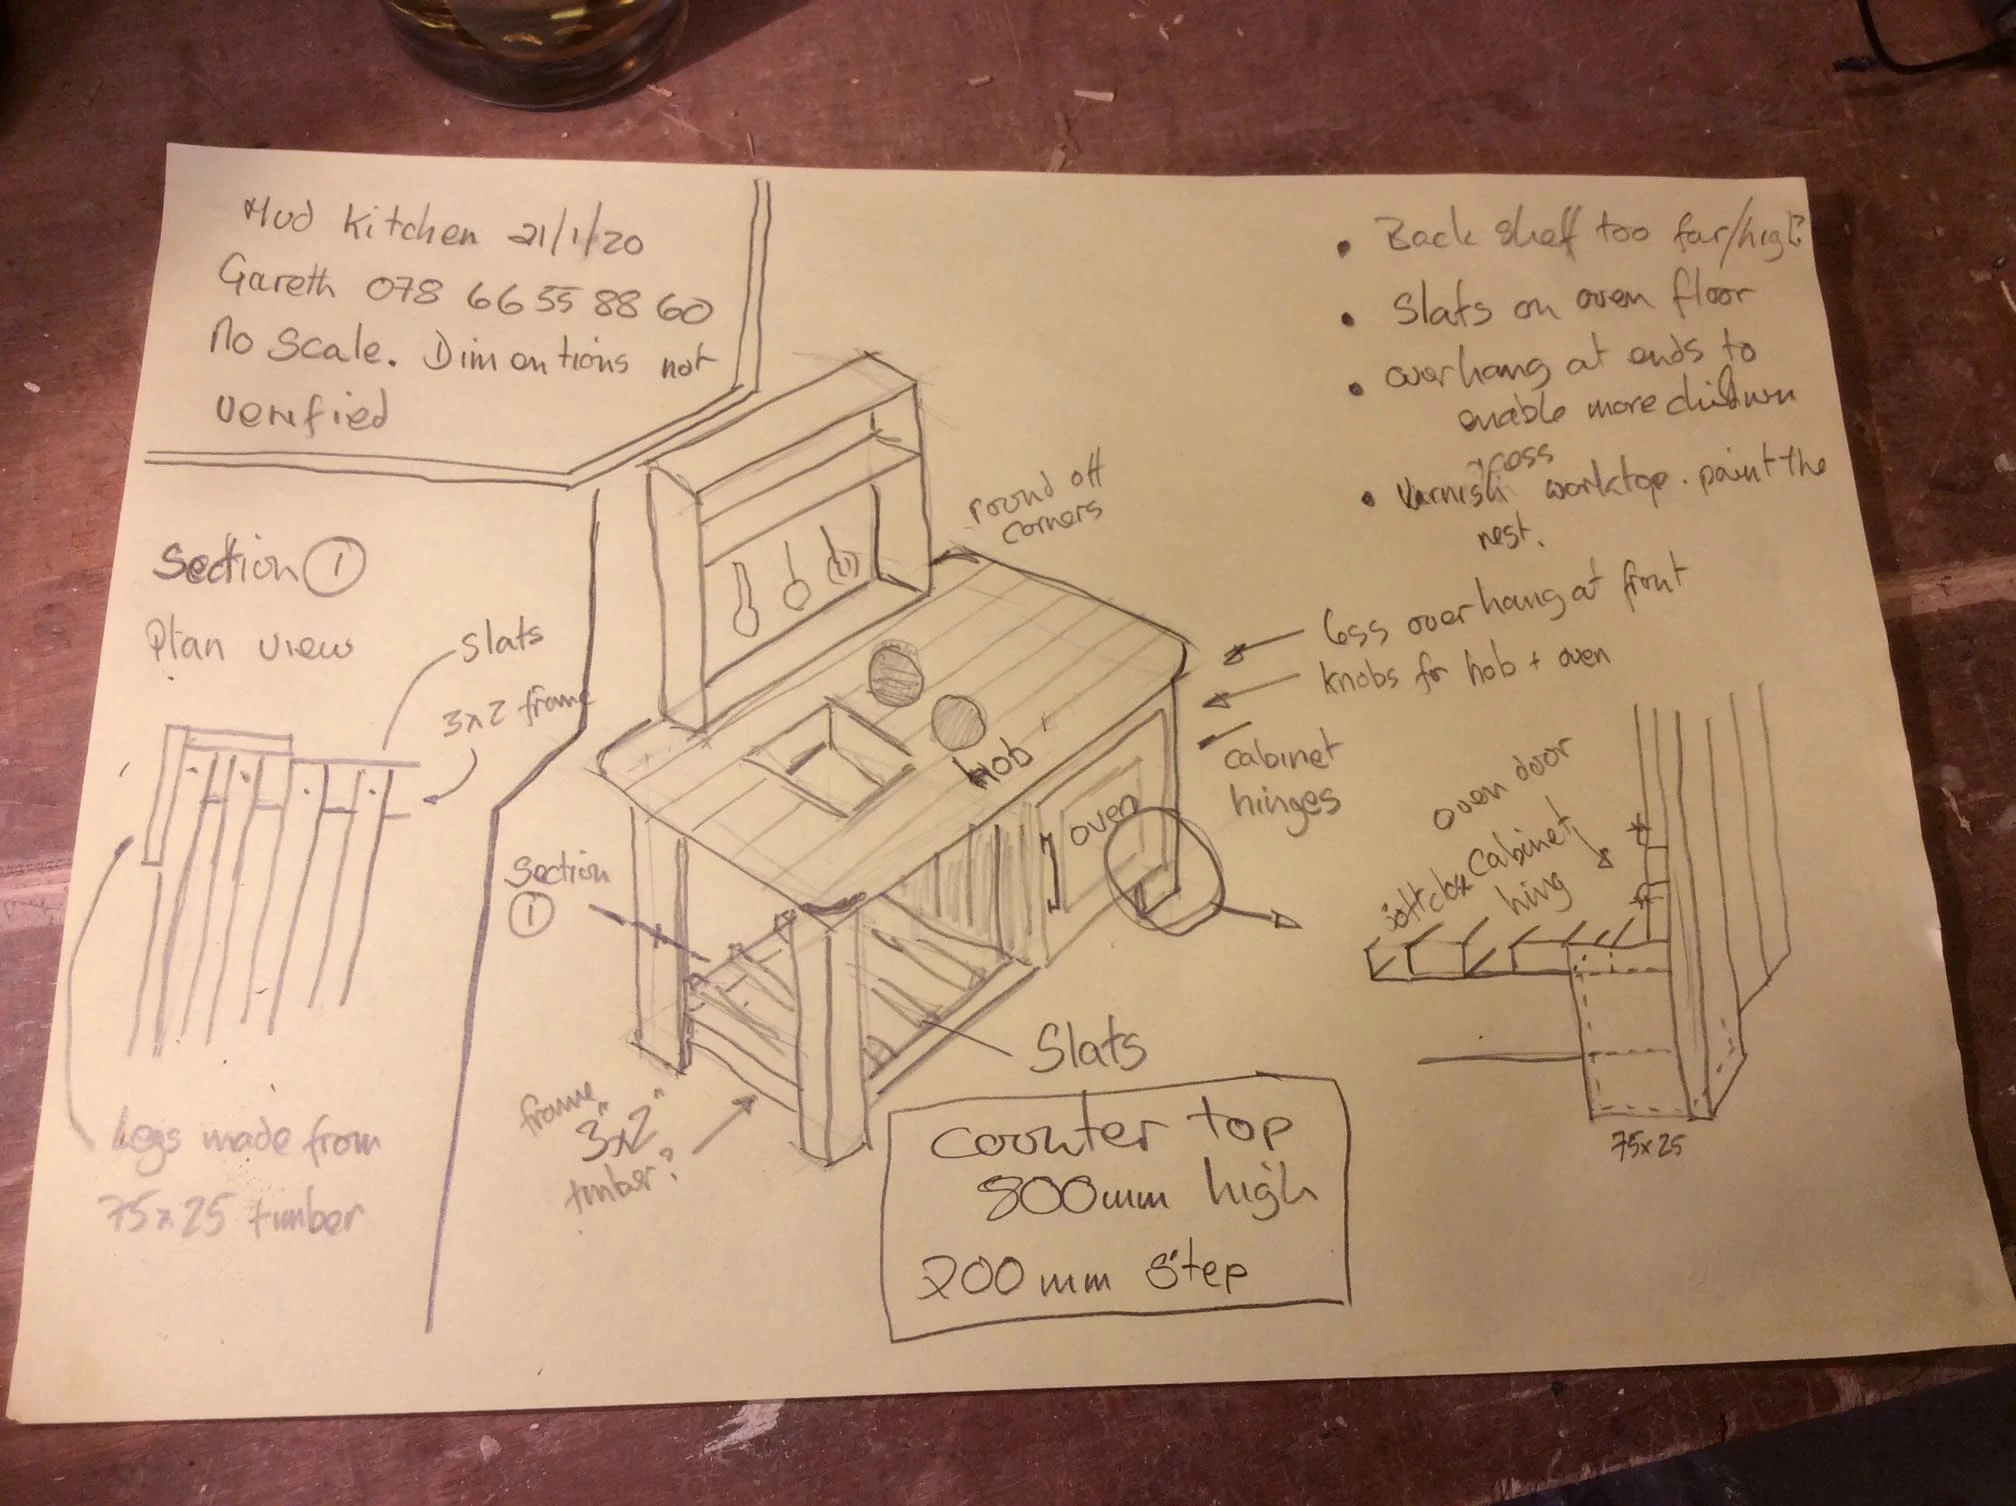 Mud Kitchen 21/1/20
Gareth 078 66 55 88 60
No Scale. Dimentions not
verified
• Back shelf too far/high?
• Slats on oven floor
• overhang at ends to
enable more children
access
• Varnish worktop. paint the
rest.
round off
corners
less overhang at front
knobs for hob + oven
cabinet
hinges
Section 1
Plan view
Slats
3x2 frame
Legs made from
75x25 timber
Hob
oven
Section
1
Slats
frame
3"x2"
timber?
Counter top
800mm high
200mm Step
oven door
Cabinet
hing
75x25